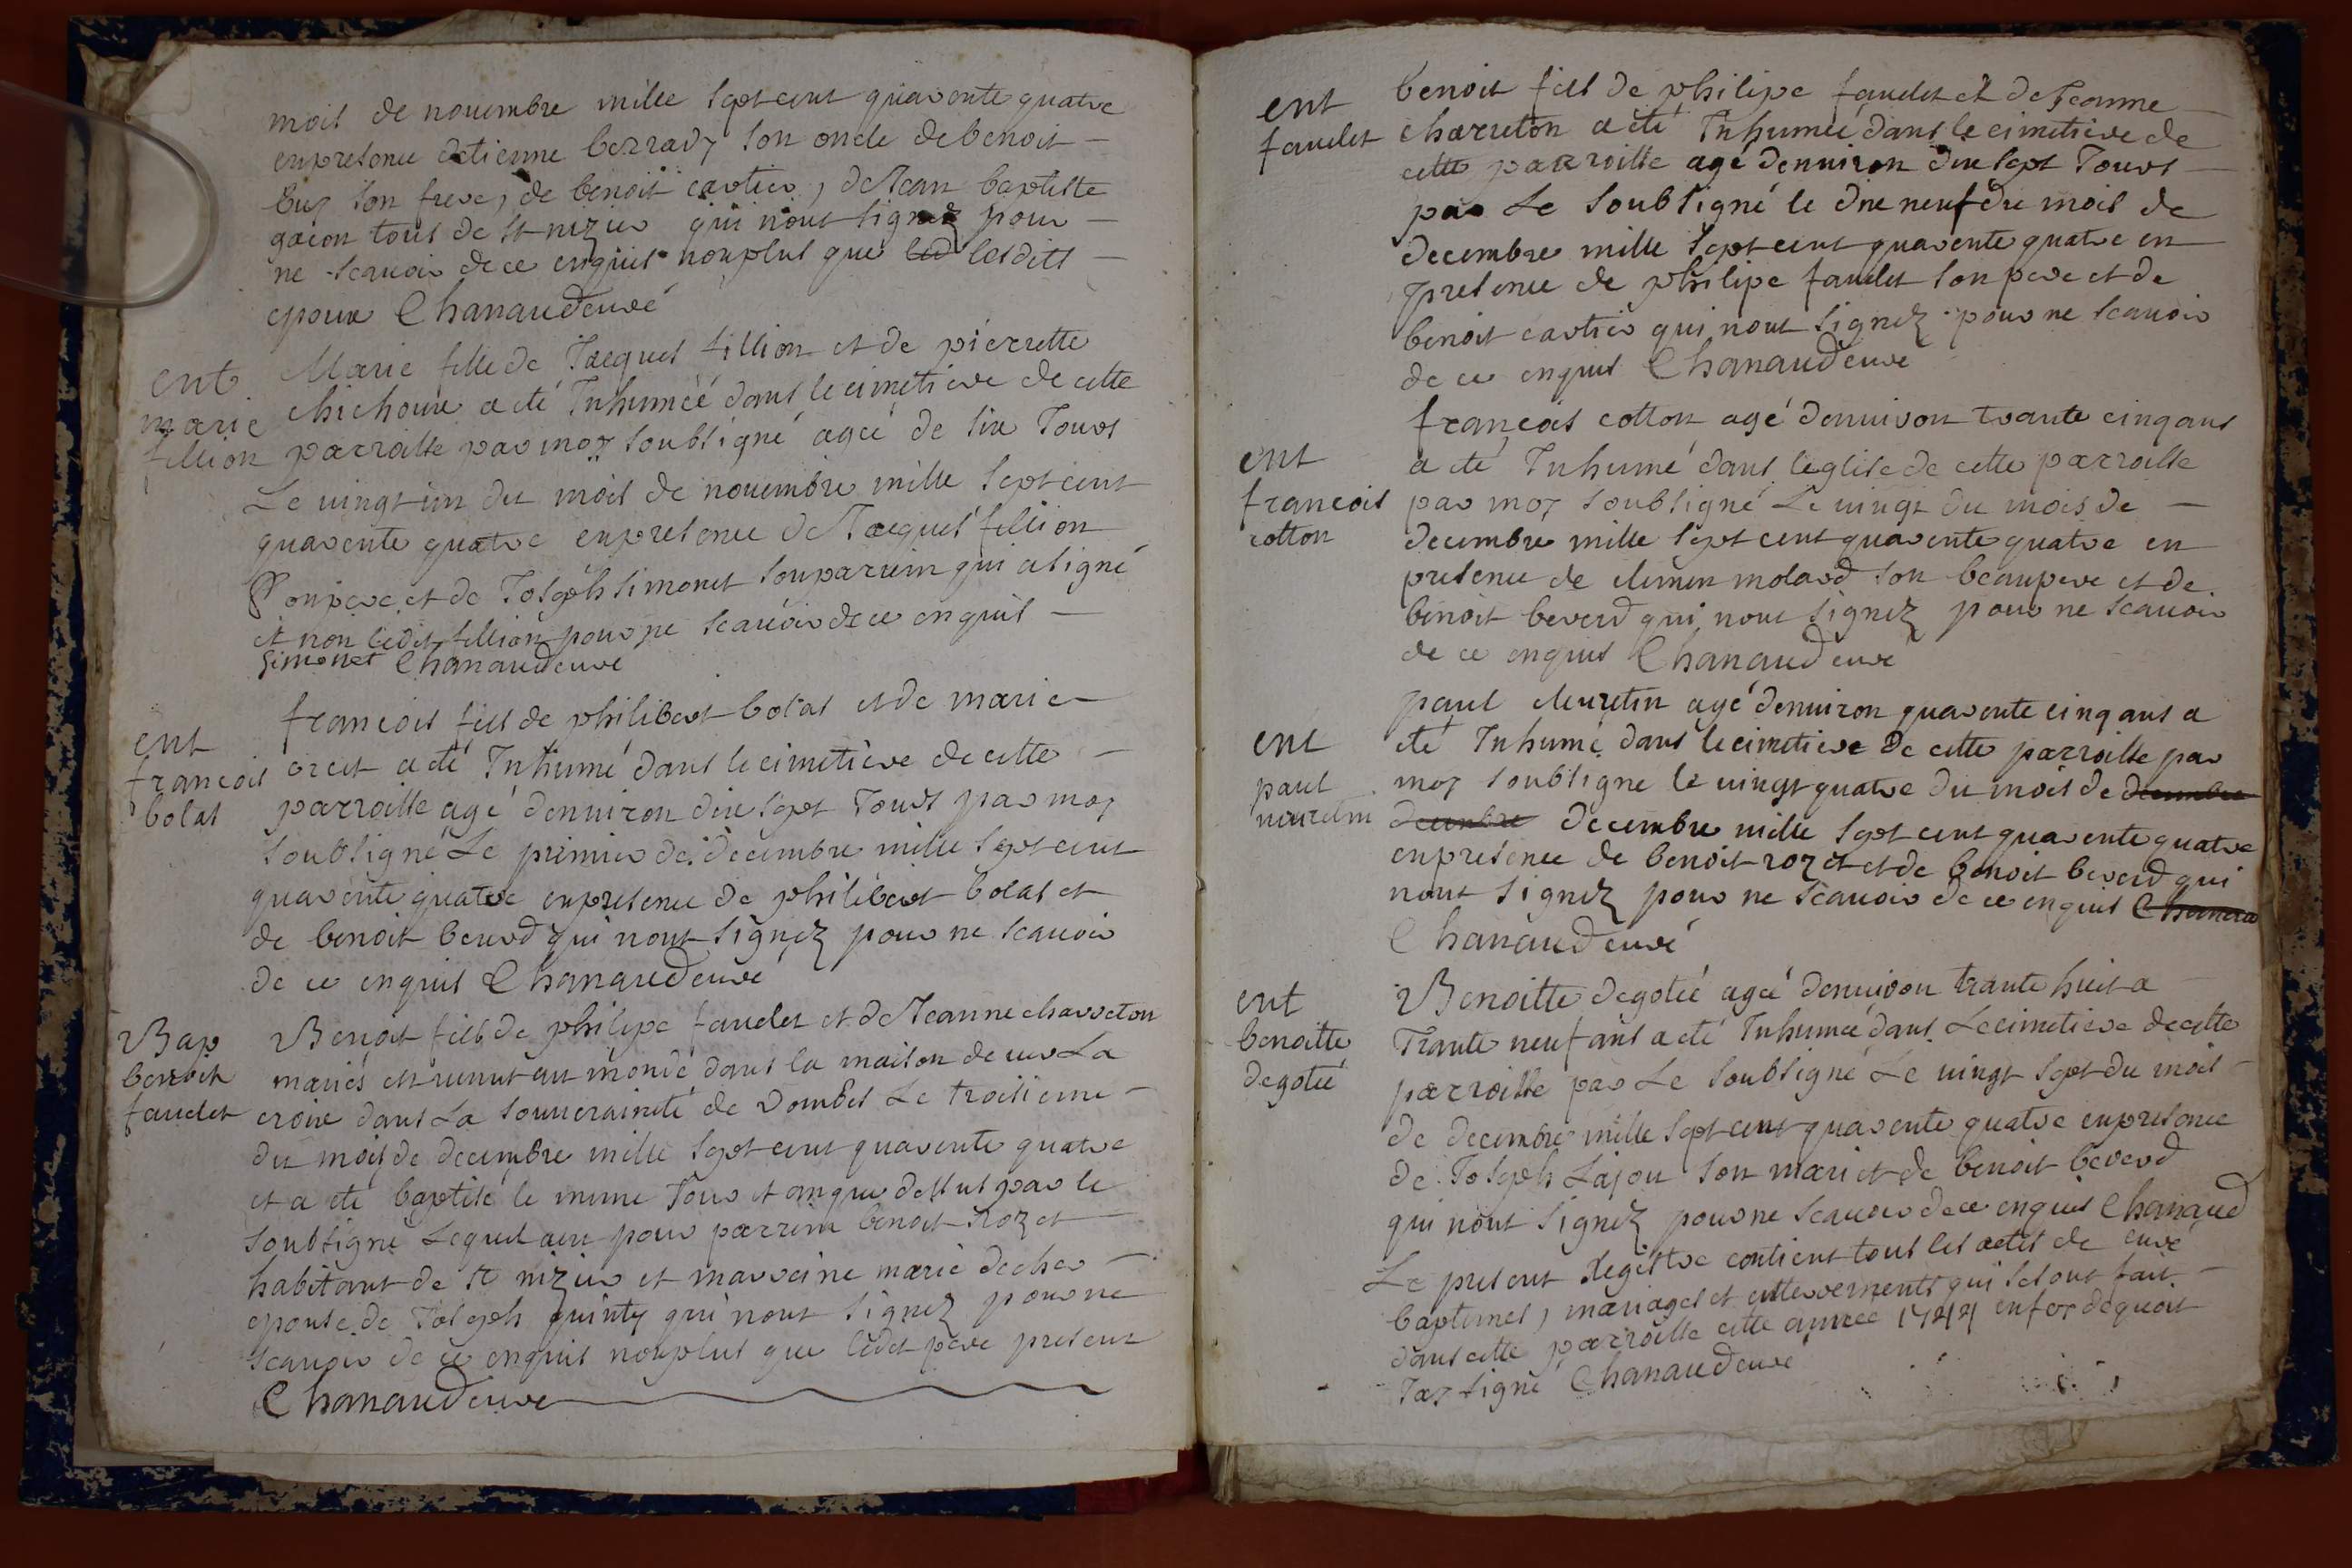 mois de nouembre mille sept cent quarente quatre
enpresence detienne berrady son oncle de benoit
buy son frere, de benoit cartier, de Jean baptiste
gacon tous de st nizier qui nont signez pour
ne scauoir de ce enquis nonplus que led lesdits
epoux Chanaud curé
ent
marie
fillion
Marie fille de Jacques fillion et de pierrette
chichoux a eté Inhumeé dans le cimetiere de cette
parroisse par moy soubsigné ageé de six Jours
Le uingt un du mois de nouembre mille sept cent
quarente quatre enpresence de Jacques fillion
Son pere et de Joseph simonet son parrein qui a signé
et non ledit fillion pour ne scauoir de ce enquis
Simonet Chanaud curé
ent
francois
bolat
francois fils de philibert bolat et de marie
orcet a eté Inhumé dans le cimetiere de cette
parroisse agé denuiron dix sept Jours par moy
soubsigné Le premier de decembre mille sept cent
quarente quatre enpresence de philibert bolat et
de benoit beuerd qui nont signez pour ne scauoir
de ce enquis Chanaud curé
Bap
benoit
faudet
Benoit fils de philipe faudet et de Jeanne charreton
mariés est uenut au monde dans la maison de uer La
croix dans La souueraineté de Dombes Le troisieme
du mois de decembre mille sept cent quarente quatre
et a eté baptisé le meme Jour et an que dessus par le
soubsigné Lequel a eu pour parrein benoit Rozet
habitant de st nizier et marreine marie decher
epouse de Joseph quinty qui nont signez pour ne
scauoir de ce enquis nonplus que ledit pere present
Chanaud curé
ent
faudet
benoit fils de philipe faudet et de Jeanne
charreton a eté Inhumeé dans le cimetiere de
cette parroisse agé denuiron dix sept Jours
par Le soubsigné le dix neuf du mois de
decembre mille sept cent quarente quatre en
presence de philipe faudet son pere et de
benoit cartier qui nont signez pour ne scauoir
de ce enquis Chanaud curé
ent
francois
cotton
françois cotton agé denuiron trante cinq ans
a eté Inhumé dans leglise de cette parroisse
par moy soubsigné Le uingt du mois de
decembre mille sept cent quarente quatre en
presence de clement molard son beaupere et de
benoit beuerd qui nont signez pour ne scauoir
de ce enquis Chanaud curé
ent
paul
paul agé denuiron quarente cinq ans a
eté Inhumé dans le cimetiere de cette parroisse par
moy soubsigne le uingt quatre du mois de decembre
decembre decembre mille sept cent quarente quatre
enpresence de benoit rozet et de benoit beuerd qui
nont signez pour ne scauoir de ce enquis Chanau
Chanaud curé
ent
benoitte
degoteé
Benoitte degoteé ageé denuiron trante huit a
Trante neuf ans a eté Inhumeé dans Le cimetiere de cette
parroisse par Le soubsigné Le uingt sept du mois
de decembre mille sept cent quarente quatre enpresence
de Joseph Lajou son mari et de benoit beuerd
qui nont signez pour ne scauoir de ce enquis Chanaud
curé
Le present Registre contient tous les actes de
baptemes, mariages et enterrements qui se sont fait
dans cette parroisse cette année 1744 en foy dequoit
Jay signé Chanaud curé